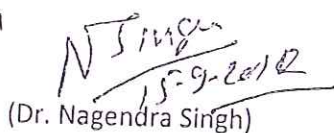 N Singh
15-9-2012
(Dr. Nagendra Singh)